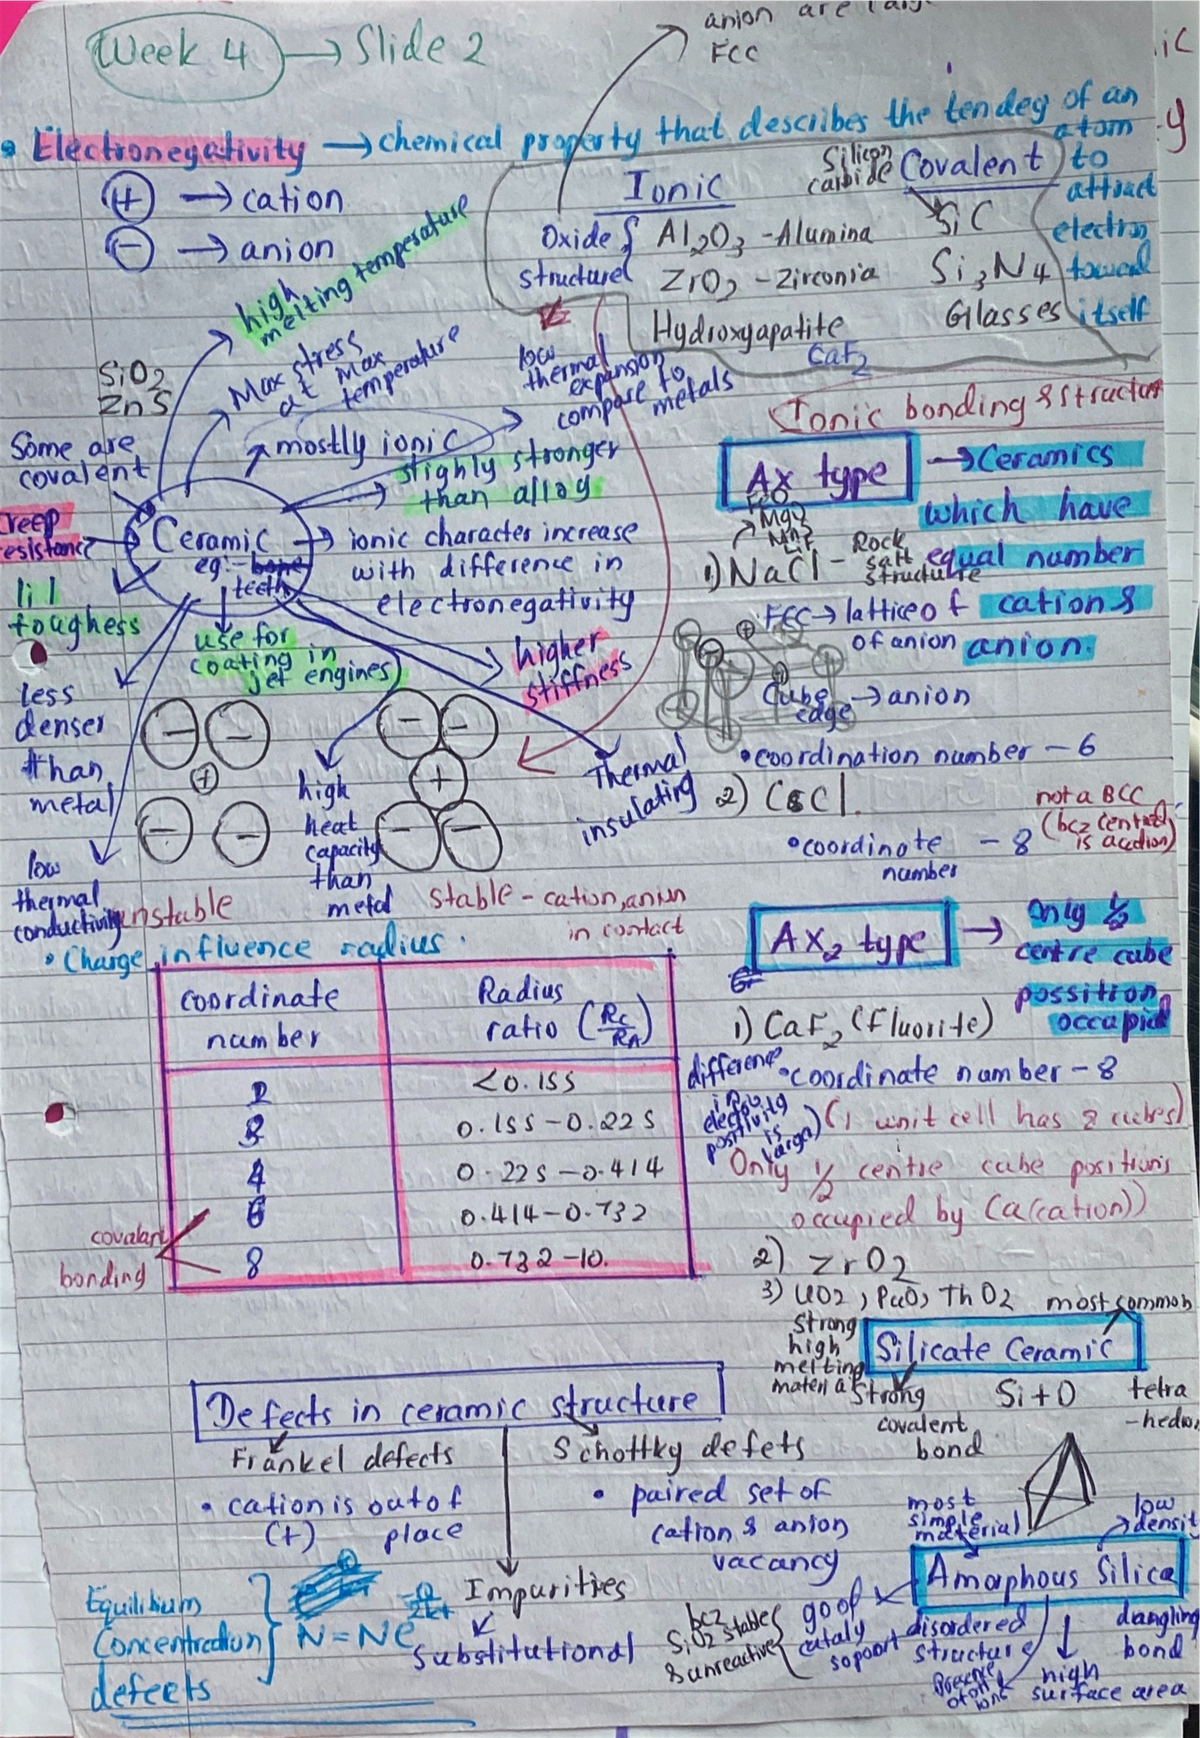 Week 4 → Slide 2
anion are
FCC
• Electronegativity → chemical property that describes the tendey of an
atom
to
attract
electron
toward
itself
⊕ → cation
⊖ → anion
Ionic
Oxide
structure
Al2O3 - Alumina
ZrO2 - Zirconia
Hydroxyapatite
CaF2
Silicon
carbide
Covalent
SiC
Si3N4
Glasses
high
melting temperature
Max stress
at Max
temperature
low
thermal
expansion
compare to
metals
SiO2
ZnS
Some are
covalent
mostly ionic
slighly stronger
than alloy
Creep
resistance
Ceramic
eg:- bone
teeth
→ ionic character increase
with difference in
electronegativity
lil
toughess
use for
coating in
jet engines
higher
stiffness
less
denser
than
metal
low
thermal
conductivity
high
heat
capacity
than
metal
Thermal
insulating
unstable
stable - cation, anion
in contact
Ionic bonding & structur
Ax type
→ Ceramics
which have
equal number
of cation &
anion.
FeO
MgO
MnS
LiF
1) NaCl - Rock
salt
structure
FCC → lattice
of anion
Cube
edge → anion
• coordination number - 6
2) CsCl.
• coordinate - 8
number
not a BCC
(bcz central
is acation)
• Charge influence radius.
coordinate
number
Radius
ratio (Rc/RA)
2
<0.155
3
0.155 - 0.225
4
0.225 - 0.414
6
0.414 - 0.732
8
0.732 - 10.
covalant
bonding
AX2 type
→ Only ½
centre cube
possition
occupied
1) CaF2 (Fluorite)
• coordinate number - 8
difference
in
electro
positivity
is
larga
(1 unit cell has 8 cubes)
Only ½ centre cube positions
occupied by Ca(cation))
2) ZrO2
3) UO2, PuO, ThO2
most common
Silicate Ceramic
strong
high
melting
materia
Strong
covalent
bond
Si + O
tetra
-hedro
Defects in ceramic structure
Frankel defects
• cation is out of
(+) place
Schottky defets
• paired set of
cation & anion
vacancy
Impurities
Substitutional
Equilibium
Concentration
defects
N = Ne
-Q
2kt
most
simple
material
low
densit
Amorphous Silica
bcz
SiO2 stable
& unreactive
goof
cataly
soport
disordered
structure
Presence
of OH
ions
high
surface area
dangling
bond